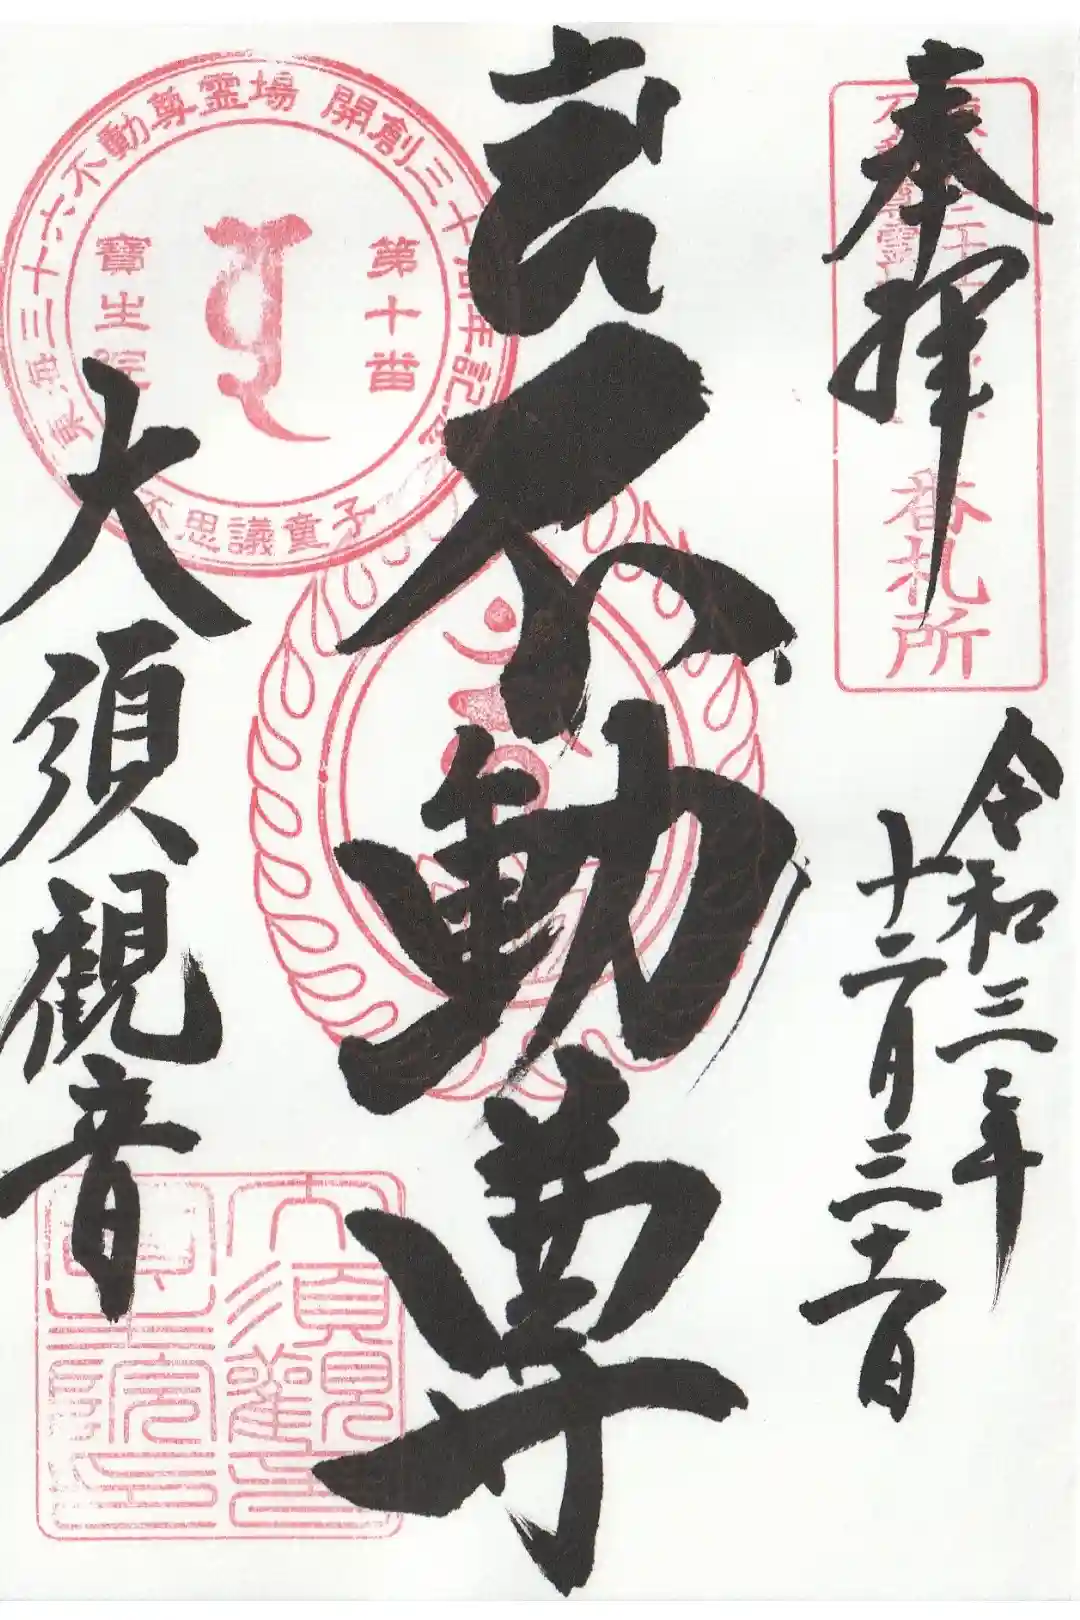 奉拝
令和三年
十二月三十一日
不動尊
大須観音
東海三十六不動尊霊場 開創三十周年記念
第十番
寶生院
不思議童子
番札所
大須観音
寶生院印